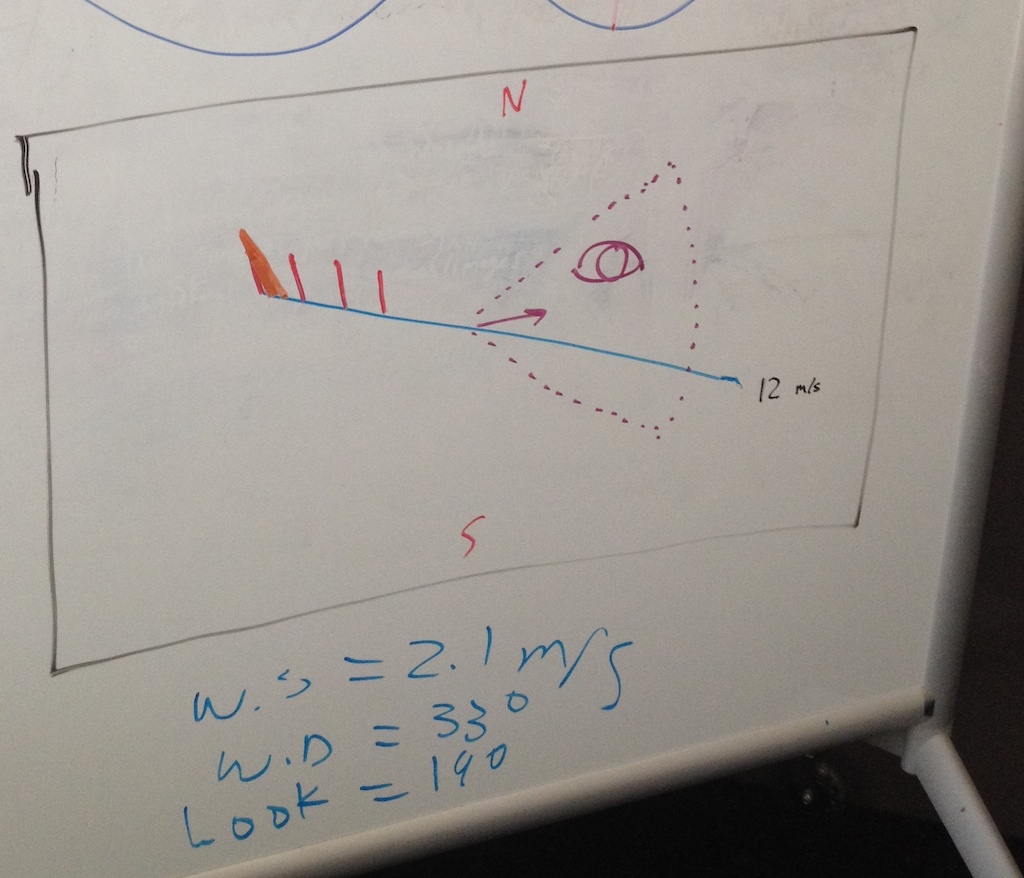 N
12 m/s
S
W.S = 2.1 m/s
W.D = 33°
Look = 19°